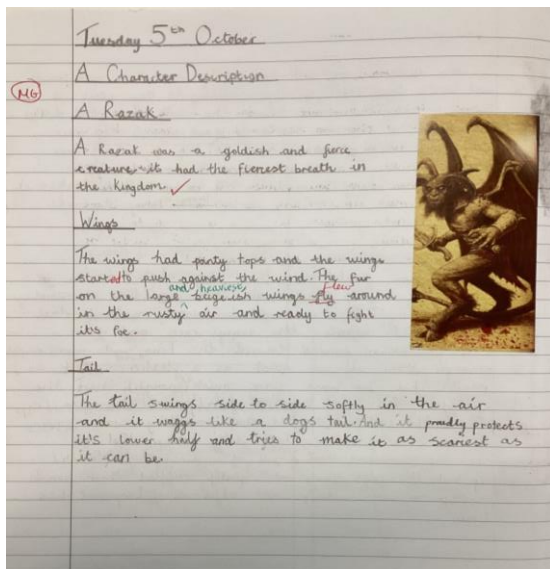 Tuesday 5th October
A Character Description
MG
A Razak.
A Razak was a goldish and fierce
creature it had the fiercest breath in
the kingdom.
Wings
The wings had pointy tops and the wings
started to push against the wind. The fur
and heaviest, flew
on the large beigeish wings fly around
in the rusty air and ready to fight
it's foe.
Tail
The tail swings side to side softly in the air
and it waggs like a dogs tail. And it proudly protects
it's lower half and tries to make it as scariest as
it can be.